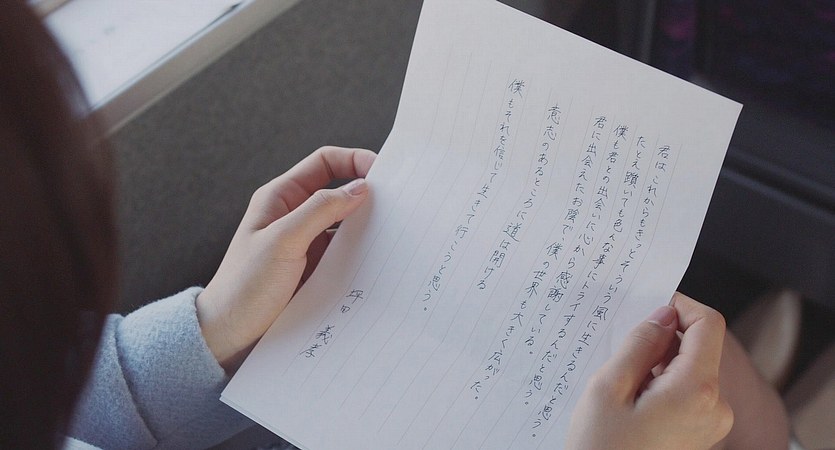 君はこれからもきっとそういう風に生きるんだと思う。
たとえ躓いても色んな事にトライするんだと思う。
僕も君との出会いに心から感謝している。
君に出会えたお陰で、僕の世界も大きく広がった。
意志のあるところに道は開ける
僕もそれを信じて生きて行こうと思う。
坪田 義孝